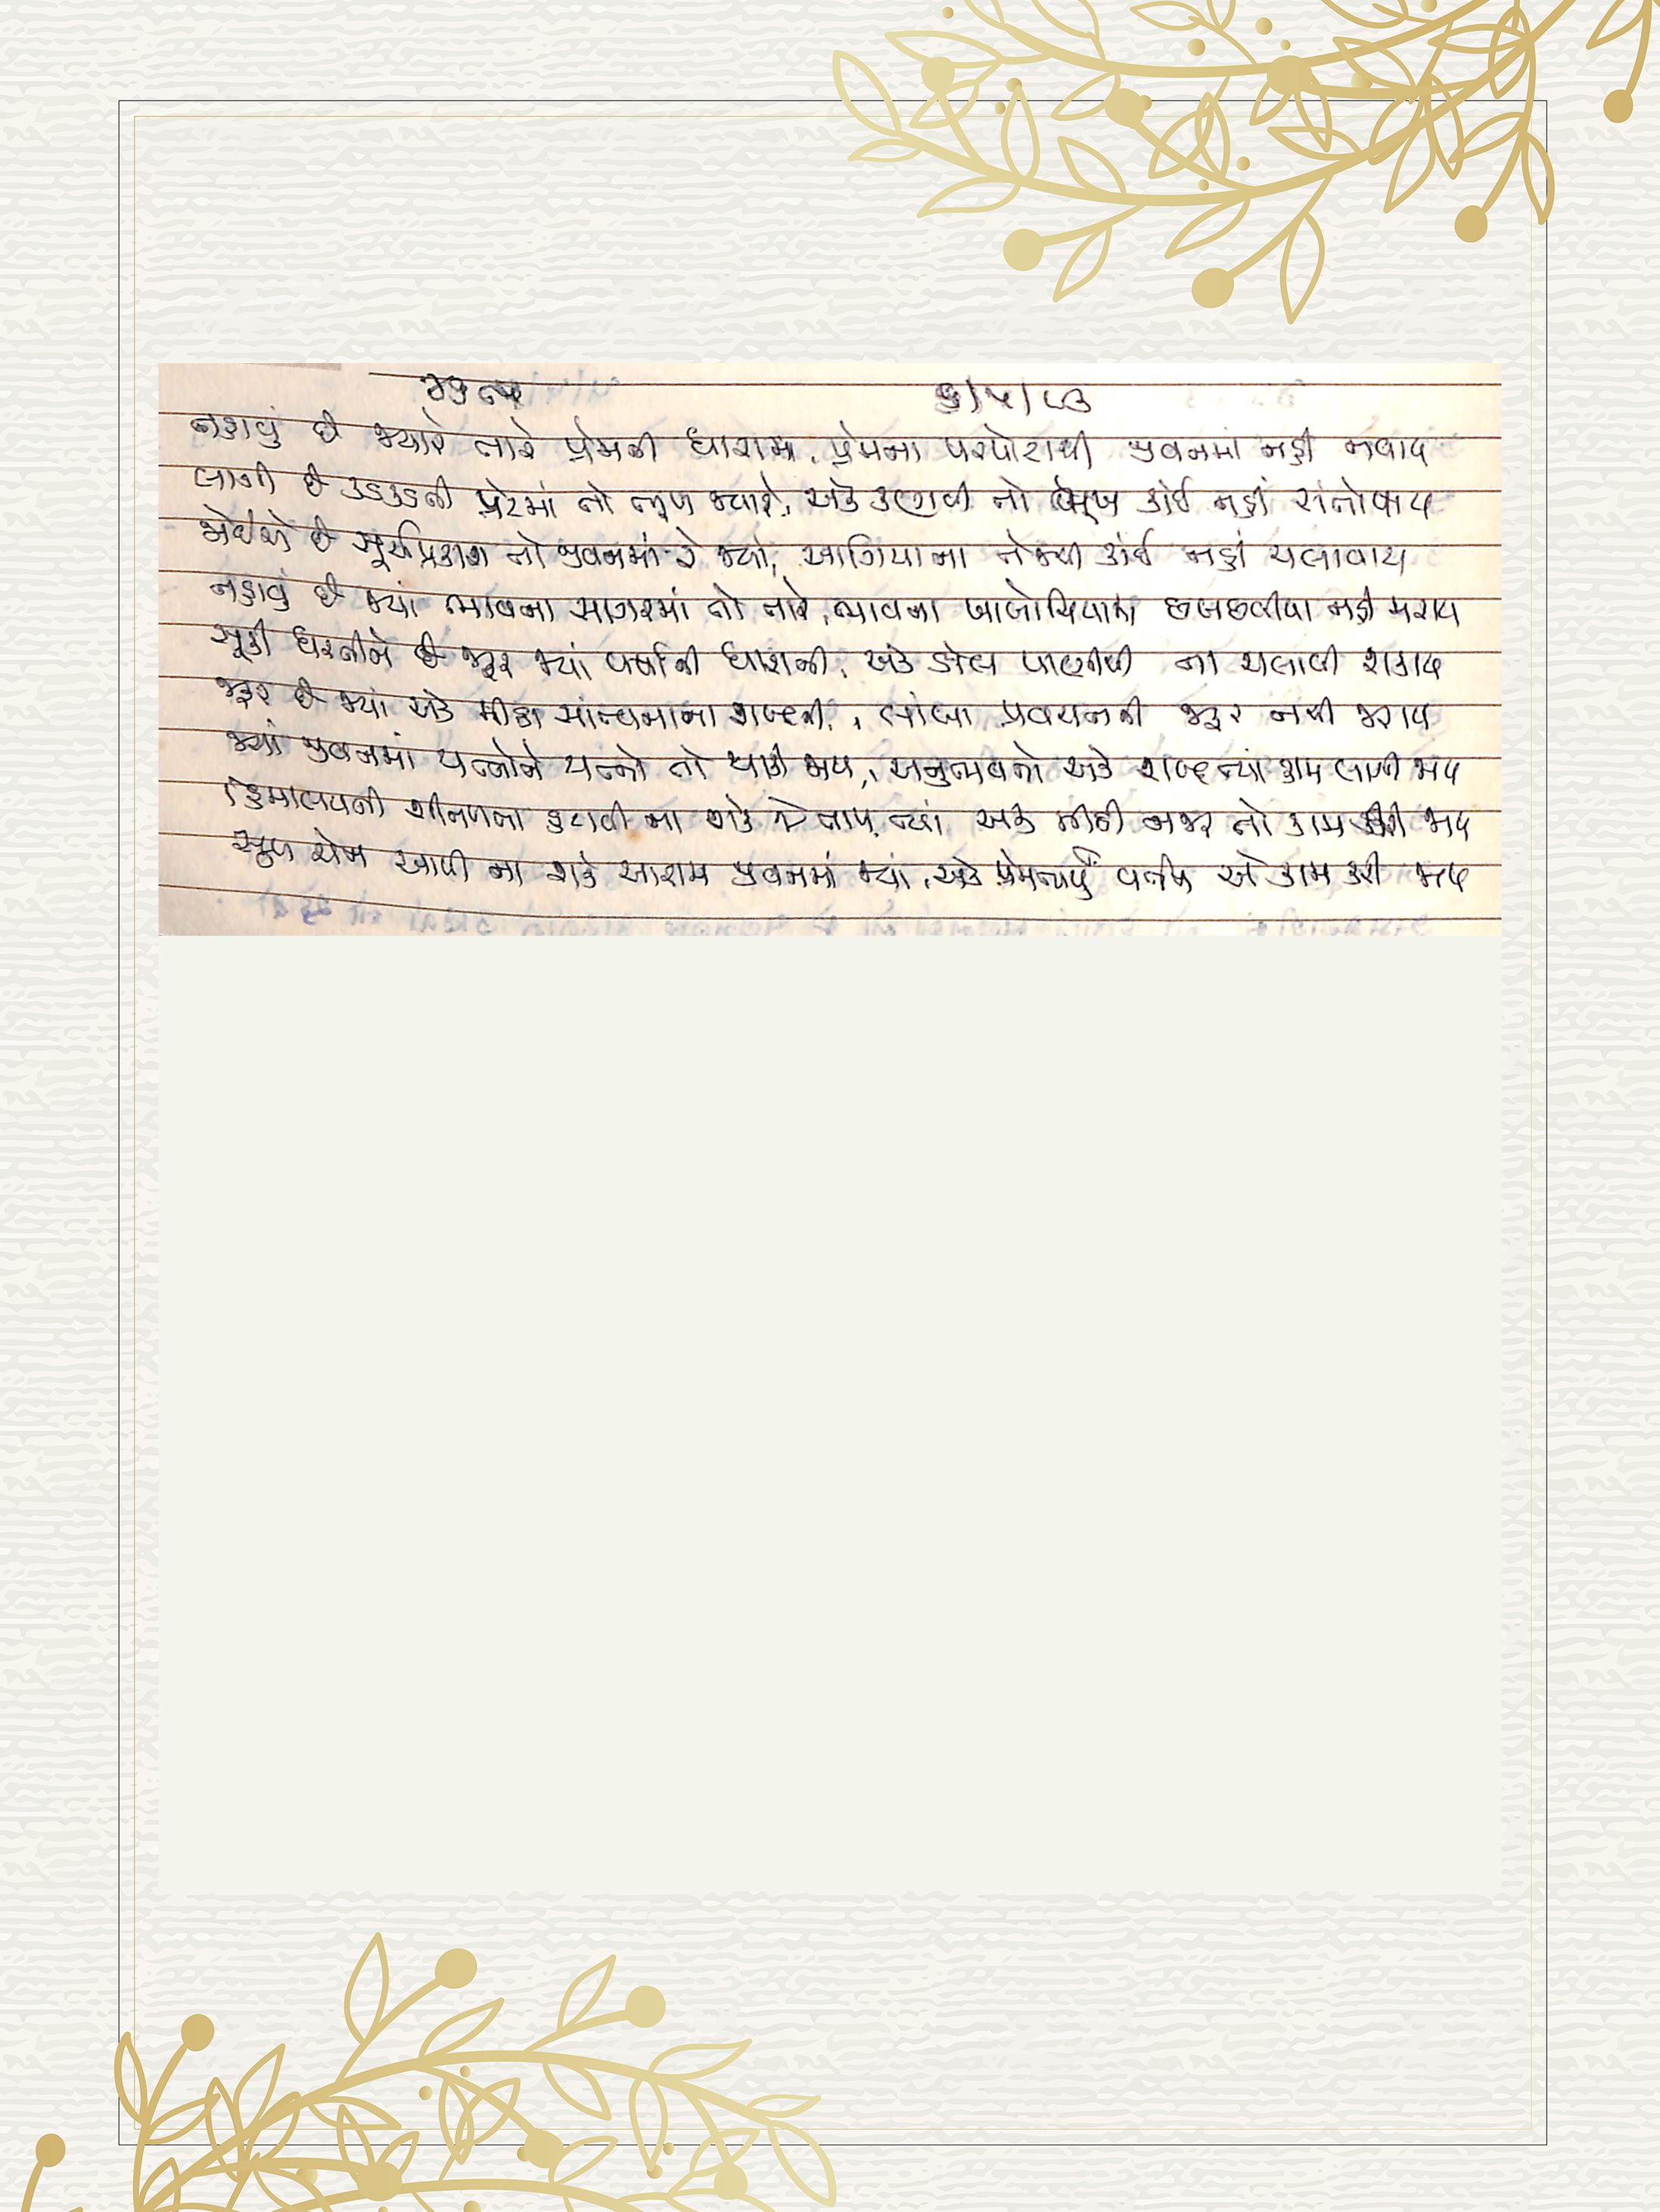 નહાવું છે જ્યારે તારે પ્રેમની ધારામાં, પ્રેમના પરપોટાથી જીવનમાં નહીં નવાય
લાગી છે કડકડતી પેટમાં તો ભૂખ જ્યારે, એક કણથી તો ભૂખ કાંઈ નહીં સંતોષાય
જોઈએ છે સૂર્યપ્રકાશ તો જીવનમાં રે જ્યાં, આગિયાના તેજથી કાંઈ નહીં ચલાવાય
નહાવું છે જ્યાં ભાવના સાગરમાં તો તારે, ભાવના ખાબોચિયામાં છબછબીયા નહીં મરાય
સૂકી ધરતીને છે જરૂર જ્યાં વર્ષાની ધારાની, એક ડોલ પાણીથી ના ચલાવી શકાય
જરૂર છે જ્યાં એક મીઠા સાંત્વનાના શબ્દની, લાંબા પ્રવચનની જરૂર નથી જરાય
જ્યાં જીવનમાં યત્નોને યત્નો તો થાકી જાય, અનુભવનો એક શબ્દ ત્યાં કામ લાગી જાય
હિમાલયની શીતળતા હટાવી ના શકે રે તાપ ત્યાં, એક મીઠી નજર તો કામ કરી જાય
ફૂલ સેજ આપી ના શકે આરામ જીવનમાં જ્યાં, એક પ્રેમભર્યું વર્તન એ કામ કરી જાય